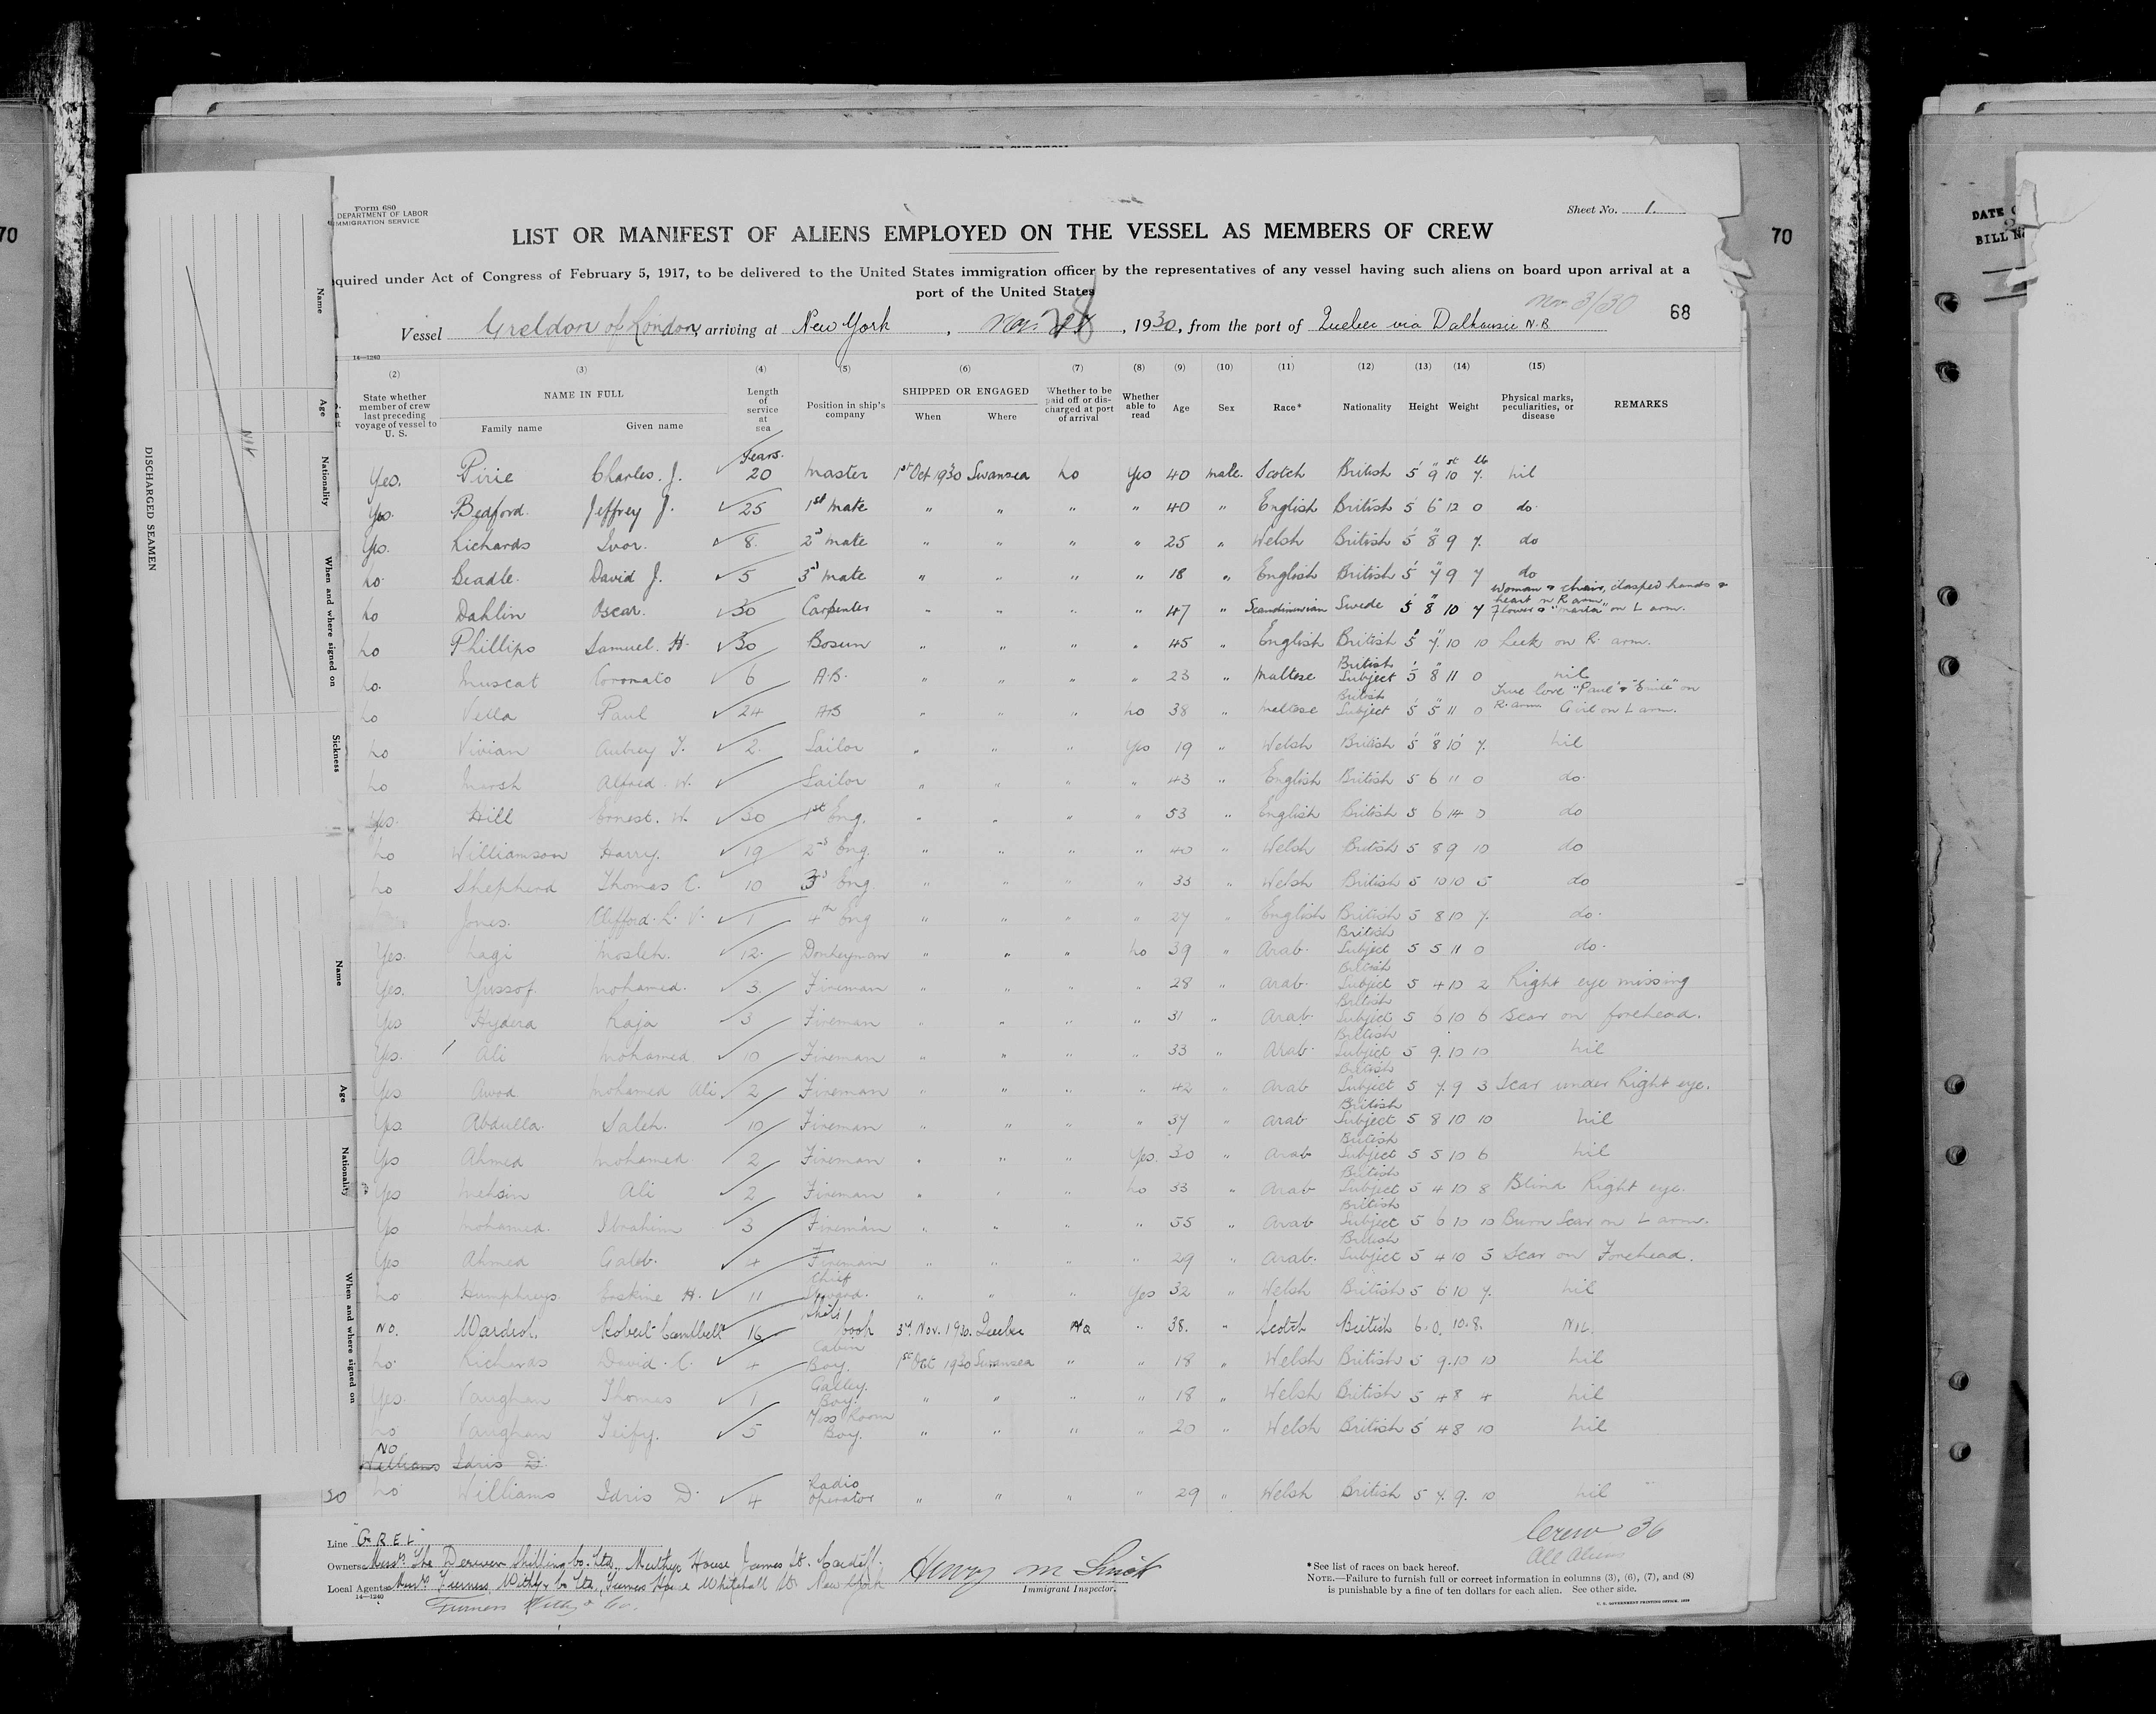 70
Form 680
DEPARTMENT OF LABOR
IMMIGRATION SERVICE
Sheet No. 1.
LIST OR MANIFEST OF ALIENS EMPLOYED ON THE VESSEL AS MEMBERS OF CREW
70
quired under Act of Congress of February 5, 1917, to be delivered to the United States immigration officer by the representatives of any vessel having such aliens on board upon arrival at a
port of the United States
Nov 3/30
68
Vessel Greldon of London, arriving at New York, Nov. 28, 1930, from the port of Quebec via Dalhousie N.B
14—1240
(2) (3) (4) (5) (6) (7) (8) (9) (10) (11) (12) (13) (14) (15)
State whether member of crew last preceding voyage of vessel to U. S.
NAME IN FULL
Family name Given name
Length of service at sea
Position in ship's company
SHIPPED OR ENGAGED
When Where
Whether to be paid off or discharged at port of arrival
Whether able to read
Age Sex Race* Nationality Height Weight
Physical marks, peculiarities, or disease
REMARKS
Years. st lb
Yes. Pirie Charles. J. 20 Master 1st Oct 1930 Swansea No Yes 40 male. Scotch British 5 9 10 7. nil
Yes. Bedford. Jeffrey J. 25 1st mate " " " " 40 " English British 5 6 12 0 do.
Yes. Richards Ivor. 8. 2nd mate " " " " 25 " Welsh British 5 8 9 7. do
No. Beadle. David J. 5 3rd mate " " " " 18 " English British 5 7 9 7 do
No Dahlin Oscar. 30 Carpenter " " " " 47 " Scandinavian Swede 5 8 10 7 Woman & chair, clasped hands & heart on R arm. Flower & "Maria" on L arm.
No Phillips Samuel. H. 30 Bosun " " " " 45 " English British 5 7. 10 10 Leek on R. arm.
No. Muscat Coronato 6 A.B. " " " " 23 " Maltese British Subject 5 8 11 0 nil
No Vella Paul 24 AB " " " No 38 " Maltese British Subject 5 5 11 0 True love "Paul" & on R. arm Girl on L arm.
No Vivian Aubrey T. 2. Sailor " " " Yes 19 " Welsh British 5 8 10 7. Nil
No Marsh Alfred. W. Sailor " " " " 43 " English British 5 6 11 0 do.
Yes. Hill Ernest. W. 30 1st Eng. " " " " 53 " English British 5 6 14 0 do
No Williamson Harry. 19 2nd Eng. " " " " 40 " Welsh British 5 8 9 10 do
No Shepherd Thomas C. 10 3rd Eng " " " " 33 " Welsh British 5 10 10 5 do
Jones. Clifford. L. V. 1 4th Eng " " " " 27 " English British 5 8 10 7. do.
Yes. Nagi Mosleh. 12. Donkeyman " " " No 39 " Arab. British Subject 5 5 11 0 do.
Yes. Yussof. Mohamed. 3. Fireman " " " " 28 " Arab. British Subject 5 4 10 2 Right eye missing
Yes Hydera Raja 3 Fireman " " " " 31 " Arab. British Subject 5 6 10 6 Scar on forehead.
Yes. Ali Mohamed 10 Fireman " " " " 33 " Arab. British Subject 5 9. 10 10 Nil
Yes Awad Mohamed Ali 2 Fireman " " " " 42 " Arab British Subject 5 7. 9 3 Scar under Right eye.
Yes Abdulla. Saleh. 10 Fireman " " " " 37 " Arab British Subject 5 8 10 10 Nil
Yes Ahmed Mohamed. 2 Fireman " " " Yes. 30 " Arab British Subject 5 5 10 6 Nil
Yes Mehsin Ali 2 Fireman " " " No 33 " Arab British Subject 5 4 10 8 Blind Right eye.
Yes Mohamed. Ibrahim 3 Fireman " " " " 55 " Arab British Subject 5 6 10 10 Burn Scar on L arm.
Yes Ahmed Galeb. 4 Fireman " " " " 29 " Arab. British Subject 5 4 10 5 Scar on Forehead.
No Humphreys Erskine H. 11 Chief Steward. " " " Yes 32 " Welsh British 5 6 10 7. Nil
NO. Wardrol. Robert Campbell 16 Ships Cook 3rd Nov. 1930. Quebec No " 38. " Scotch British 6. 0. 10. 8. NIL.
No. Richards David. C. 4 Cabin Boy. 1st Oct 1930 Swansea " " 18 " Welsh British 5 9. 10 10 Nil
Yes. Vaughan Thomas 1 Galley. Boy. " " " " 18 " Welsh British 5 4 8 4 Nil
No Vaughan Teify. 5 Mess Room Boy. " " " " 20 " Welsh British 5 4 8 10 Nil
NO
Williams Idris D.
30 No Williams Idris D. 4 Radio operator " " " " 29 " Welsh British 5 7. 9. 10 Nil
Line "GREL"
Owners Messrs The Derwen Shipping Co. Ltd. Merthyr House James St. Cardiff.
Local Agents Messrs Furness, Withy, & Co Ltd., Furness House Whitehall St. New York
14—1240
Furness Withy & Co.
Henry M Smith
Immigrant Inspector.
Crew 36
All Aliens
*See list of races on back hereof.
NOTE.—Failure to furnish full or correct information in columns (3), (6), (7), and (8)
is punishable by a fine of ten dollars for each alien. See other side.
U. S. GOVERNMENT PRINTING OFFICE
DISCHARGED SEAMEN
Name
Age
Nationality
When and where signed on
Sickness
NIL
Name
Age
Nationality
When and where signed on
70
DATE
BILL